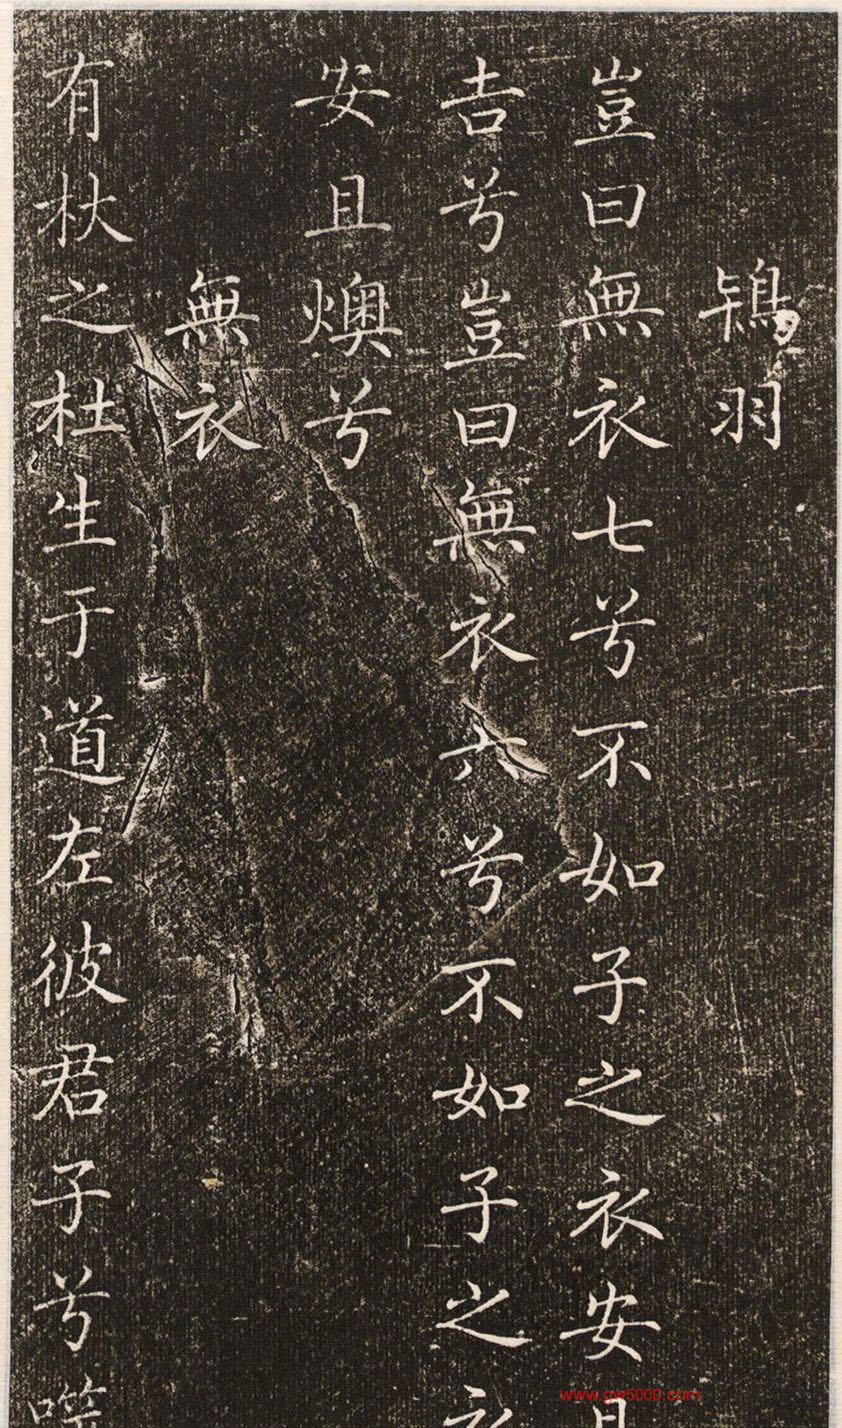 鴇羽
豈曰無衣七兮不如子之衣安且
吉兮豈曰無衣六兮不如子之衣
安且燠兮
無衣
有杕之杜生于道左彼君子兮噬
www.gw5000.com